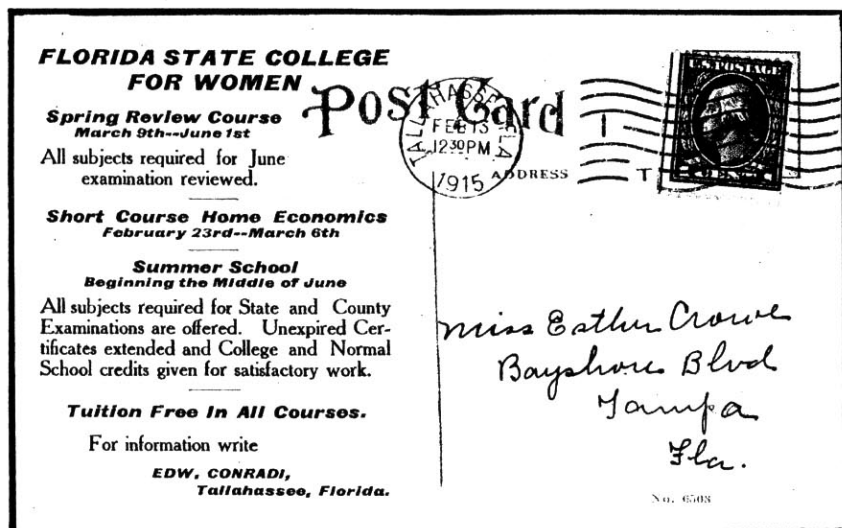 FLORIDA STATE COLLEGE
FOR WOMEN
Spring Review Course
March 9th--June 1st
All subjects required for June
examination reviewed.
Short Course Home Economics
February 23rd--March 6th
Summer School
Beginning the Middle of June
All subjects required for State and County
Examinations are offered. Unexpired Cer-
tificates extended and College and Normal
School credits given for satisfactory work.
Tuition Free In All Courses.
For information write
EDW. CONRADI,
Tallahassee, Florida.
Post Card
TALLAHASSEE FLA
FEB 13
12 30 PM
1915
ADDRESS
U.S. POSTAGE
Miss Esther Crowe
Bayshore Blvd
Tampa
Fla.
No. 6508